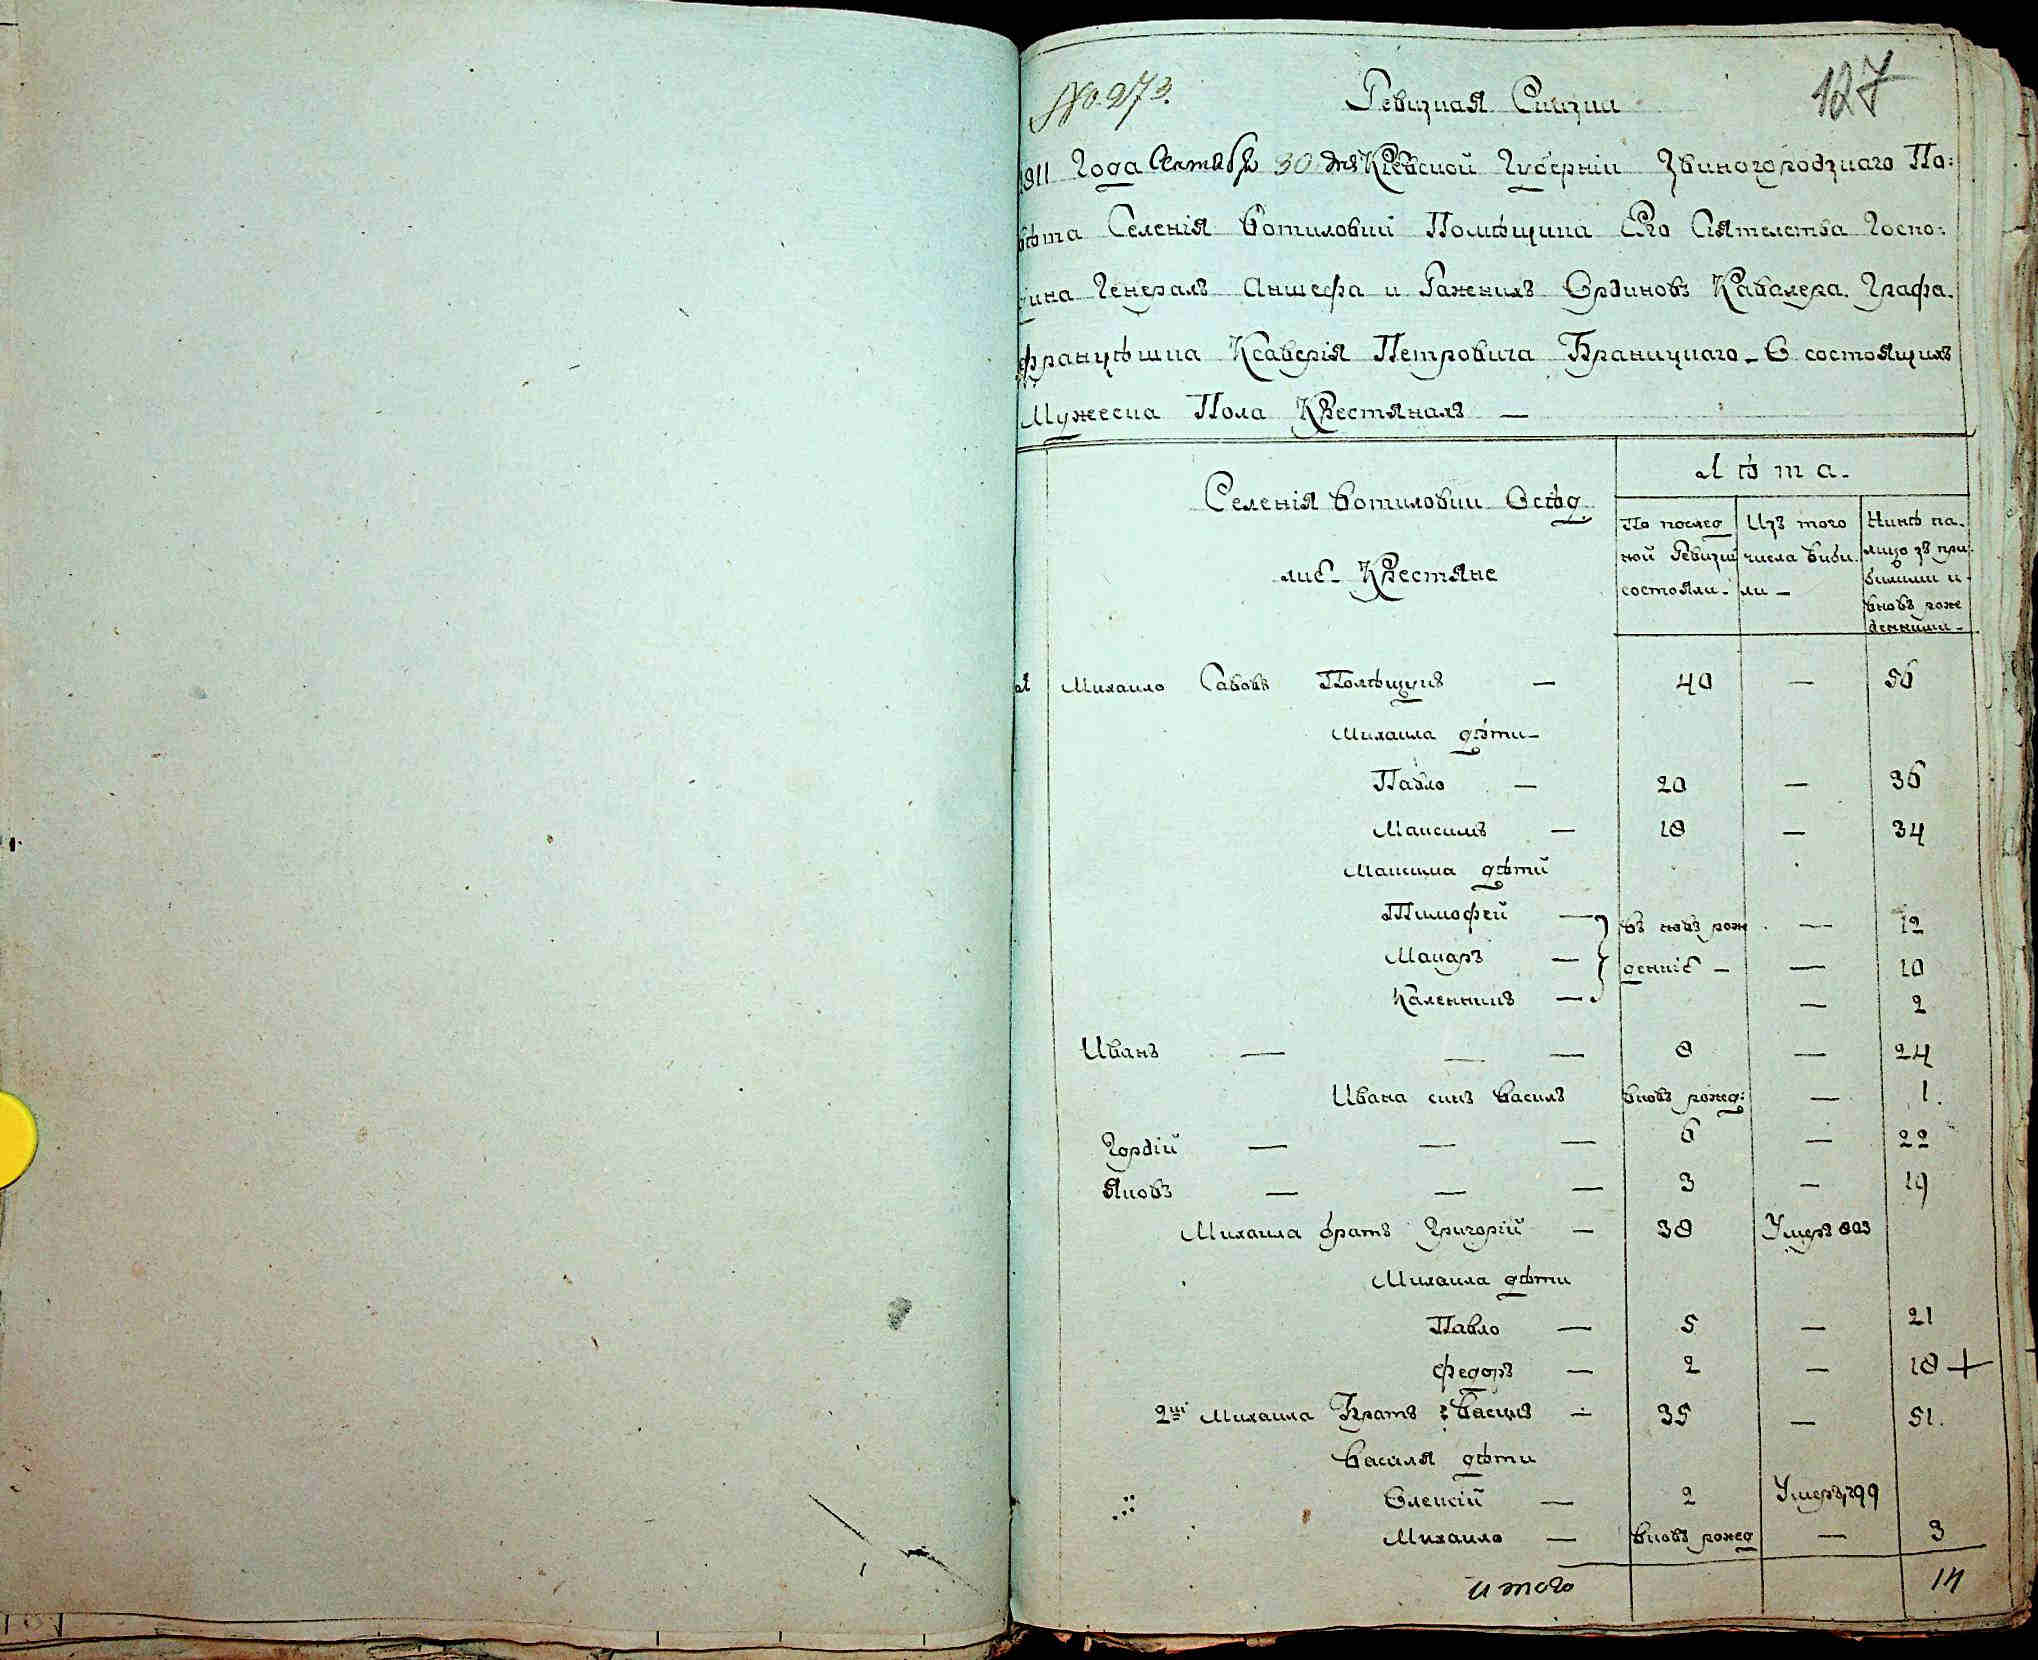 No. 273.
127
Ревизкая Сказка
1811 Года Октября 30 дня Кіевской Губерніи Звиногородзкаго По:
вѣта Селенія Вотилөвки Помѣщика Его Сіятелства Госпо:
дина Генералъ Аншефа и Разнихъ Ординовъ Кавалера Графа
Францѣшка Ксаверія Петровича Браницкаго - О состоящихъ
Мужеска Пола Крестянахъ —
Селенія Вотиловки Осѣд
лиє Крестяне
Лѣта.
По послед
ной Ревизіи
состояли -
Изъ того
числа виби
ли -
Нинѣ на
лицо зъ при
билими и
вновъ рож
денними -
Михаило Савовъ Полѣщукъ — 40 — 56
Михаила дѣти -
Павло — 20 — 36
Максимъ — 18 — 34
Максима дѣти
Тимофей — въ новъ рож — 12
Макаръ — денніє - — 10
Каленникъ — — 2
Иванъ — — — 8 — 24
Ивана синъ Василь вновъ рожед: — 1.
Гордій — — — 6 — 22
Яковъ — — — 3 — 19
Михаила братъ Григорій — 38 Умеръ 803
Михаила дѣти
Павло — 5 — 21
Федоръ — 2 — 18 +
2й Михаила Братъ Василь — 35 — 51.
Василя дѣти
Олексій — 2 Умеръ 799
Михаило — вновъ рожед — 3
итого 14